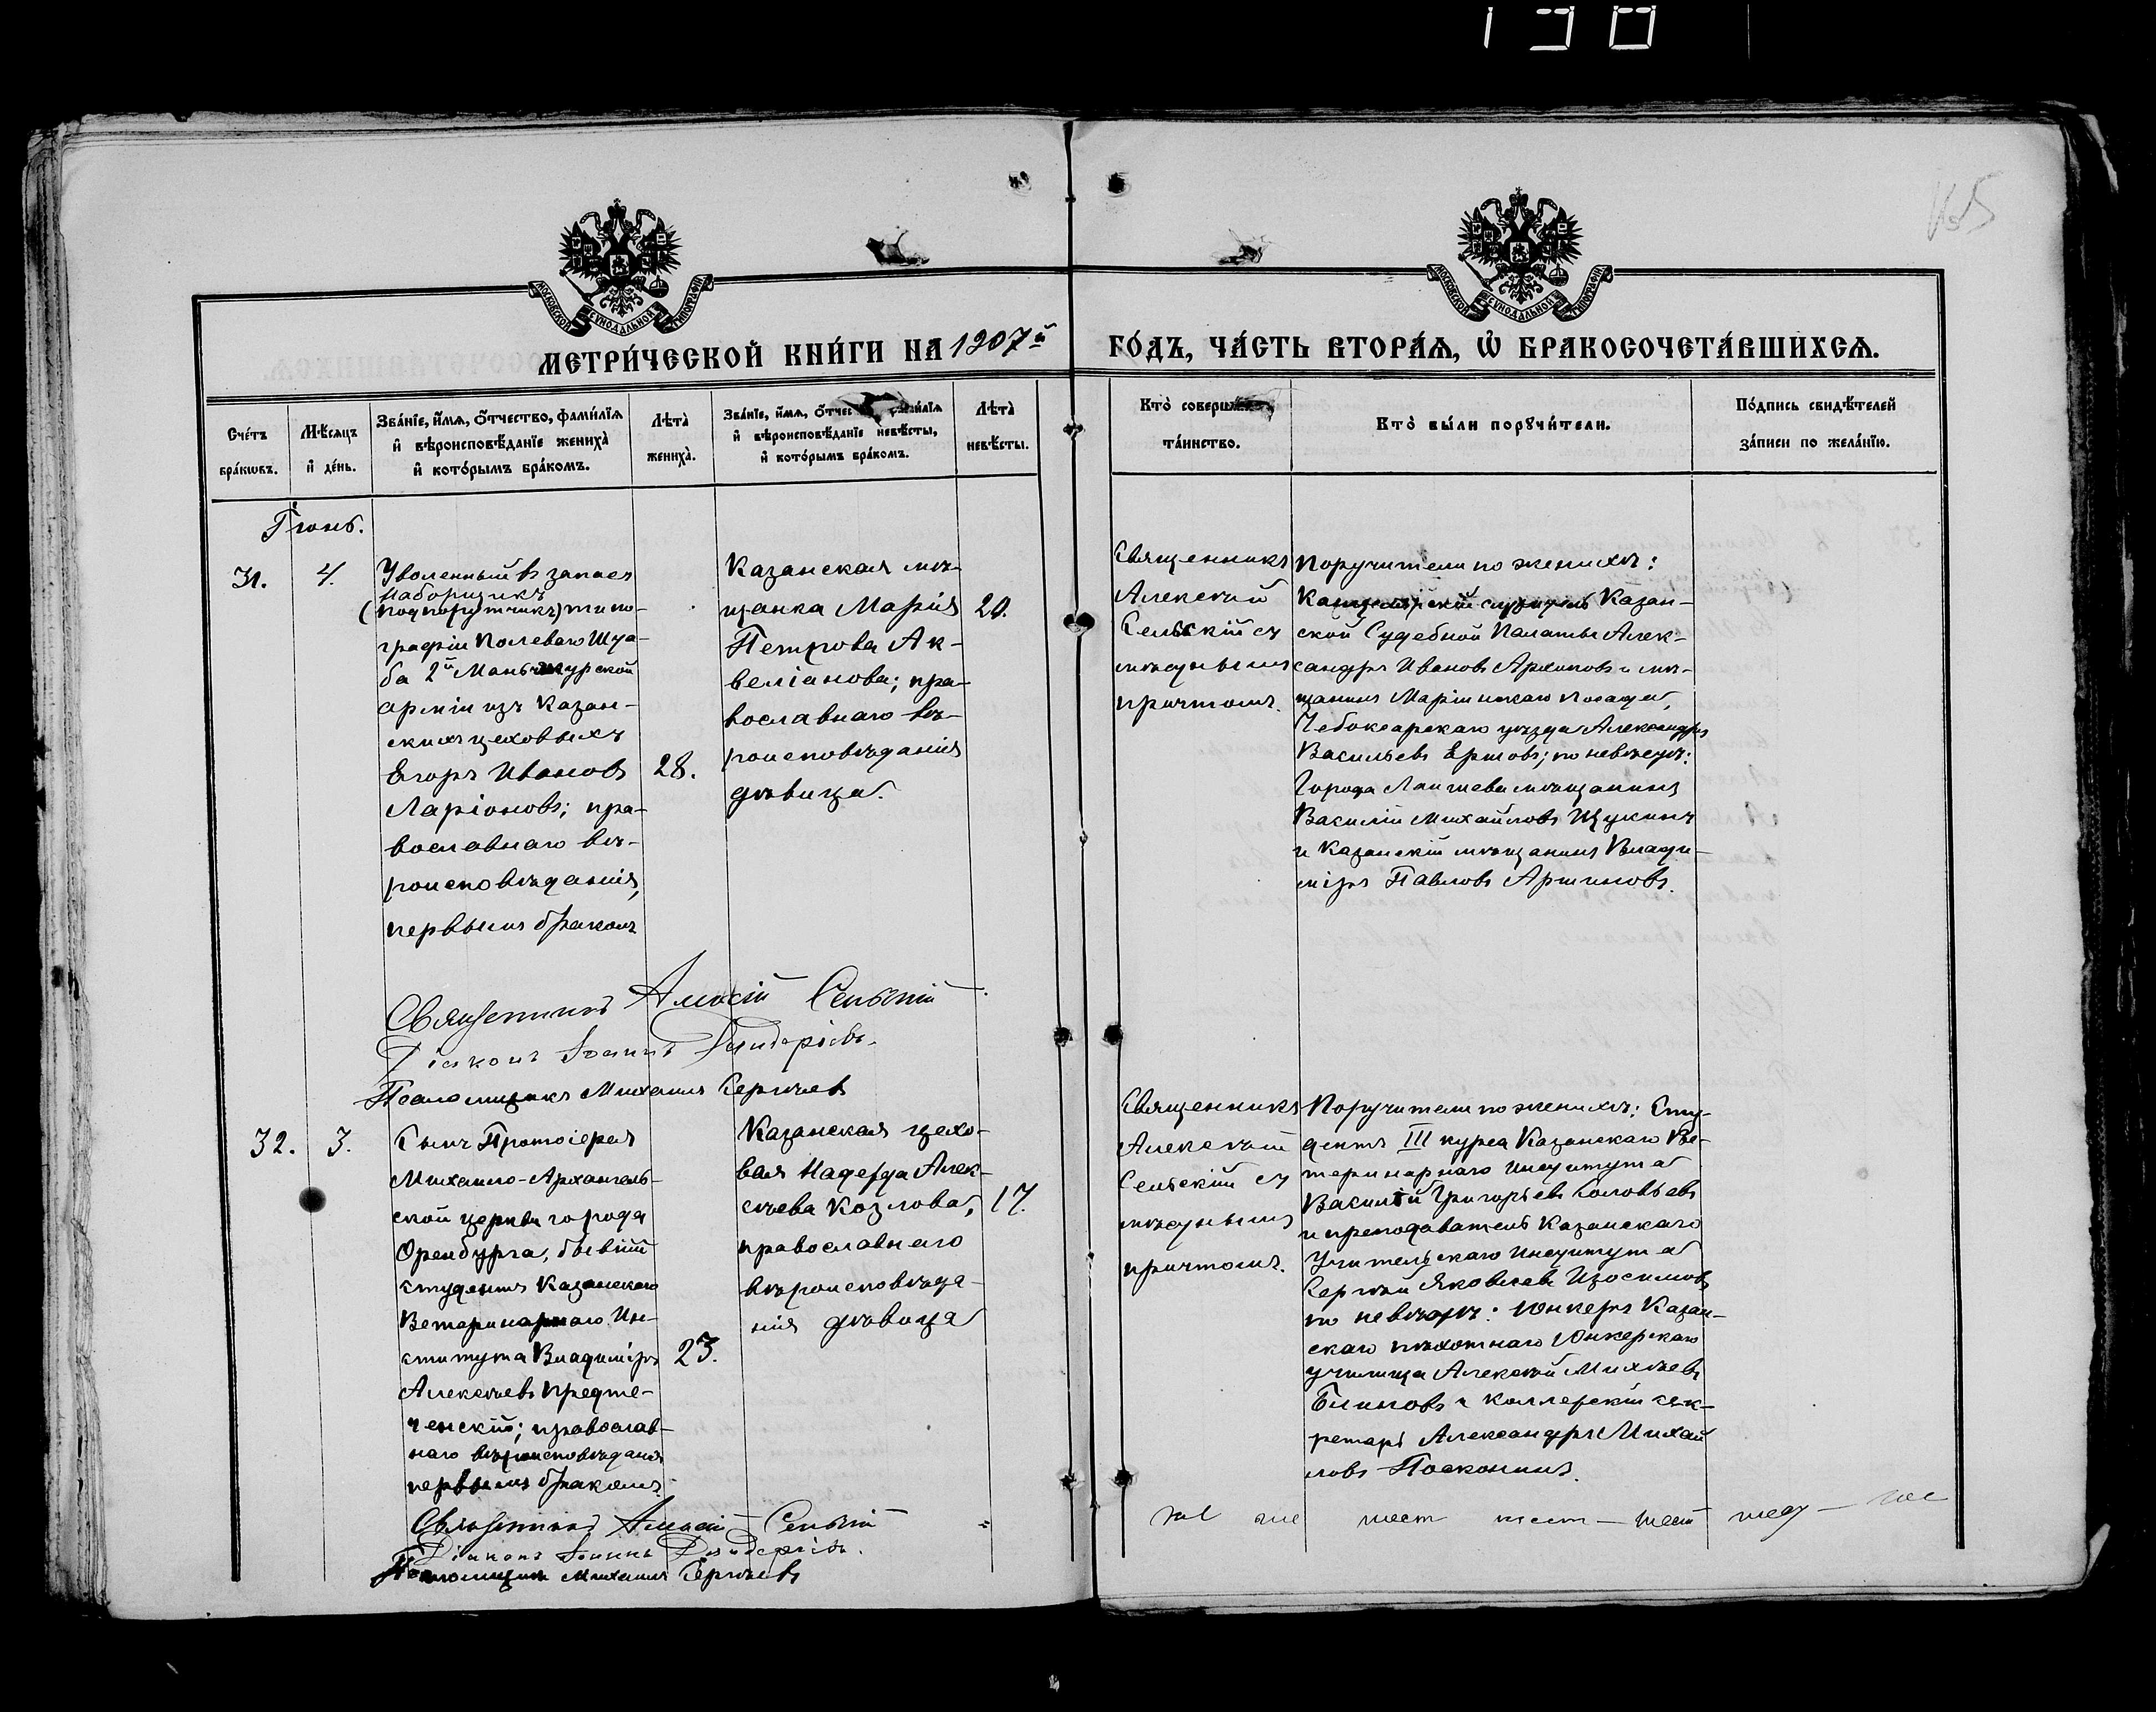 198
165
МЕТРИ́ЧЕСКОЙ КНИ́ГИ НА 1907й ГО́ДЪ, ЧА́СТЬ ВТОРА́Я, Ѡ҆ БРАКОСОЧЕТА́ВШИХСЯ.
Сче́тъ бра́кѡвъ.
Мѣ́сяцъ и҆ де́нь.
Зва́нїе, и҆́мя, о҆́тчество, фами́лїя и҆ вѣроисповѣ́данїе жениха̀ и҆ кото́рымъ бра́комъ.
Лѣта̀ жениха̀.
Зва́нїе, и҆́мя, о҆́тчес фами́лїя и҆ вѣроисповѣ́данїе невѣ́сты, и҆ кото́рымъ бра́комъ.
Лѣта̀ невѣ́сты.
Кто̀ соверш та́инство.
Кто̀ бы́ли порꙋчи́тели.
По́дпись свидѣ́телей за́писи по жела́нїю.
Іюнь.
31.
4.
Уволенный въ запасъ
наборщикъ
(подпоручикъ) типо-
графіи Полеваго Шта-
ба 2й Маньчжурской
арміи изъ Казан-
скихъ цеховыхъ
Егоръ Ивановъ
Ларіоновъ; пра-
вославнаго вѣ-
роисповѣданія,
первымъ бракомъ
28.
Казанская мѣ-
щанка Марія
Петрова Ак-
веліанова; пра-
вославнаго вѣ-
роисповѣданія
дѣвица.
20.
Священникъ
Алексѣй
Сельскій съ
мѣстнымъ
причтомъ.
Поручители по женихѣ:
Канцелярскій служитель Казан-
ской Судебной Палаты Алек-
сандръ Ивановъ Архиповъ и мѣ-
щанинъ Маріинскаго Посада,
Чебоксарскаго уѣзда Александръ
Васильевъ Ершовъ; по невѣстѣ:
Города Лаишева мѣщанинъ
Василій Михайловъ Щукинъ
и Казанскій мѣщанинъ Влади-
міръ Павловъ Аршиновъ.
Священникъ Алексій Сельскій
Діаконъ Іоаннъ
Псаломщикъ Михаилъ Сергѣевъ
32.
3.
Сынъ Протоіерея
Михаило-Архангель-
ской церкви города
Оренбурга, бывшій
студентъ Казанскаго
Ветеринарнаго Ин-
ститута Владиміръ
Алексѣевъ Предте-
ченскій; православ-
наго вѣроисповѣданія
первымъ бракомъ.
23.
Казанская цехо-
вая Надежда Алек-
сѣева Козлова,
православнаго
вѣроисповѣда-
нія дѣвица
17.
Священникъ
Алексѣй
Сельскій съ
мѣстнымъ
причтомъ.
Поручители по женихѣ: Сту-
дентъ III курса Казанскаго Ве-
теринарнаго Института
Василій Григорьевъ Соловьевъ
и преподаватель Казанскаго
Учительскаго Института
Сергѣй Яковлевъ Изосимовъ
по невѣстѣ: Юнкеръ Казан-
скаго пѣхотнаго Юнкерскаго
училища Алексѣй Михѣевъ
Блиновъ и Коллежскій сек-
ретарь Александръ Михай
ловъ Посконинъ.
Священникъ Алексій Сельскій
Діаконъ Іоаннъ
Псаломщикъ Михаилъ Сергѣевъ